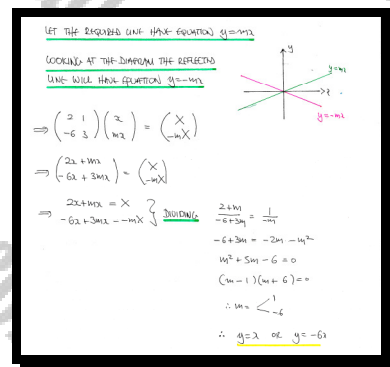 LET THE REQUIRED LINE HAVE EQUATION y=mx
LOOKING AT THE DIAGRAM THE REFLECTED
LINE WILL HAVE EQUATION y=-mx
y
y=mx
x
y=-mx
⇒ (2 1
-6 3) (x
mx) = (X
-mX)
⇒ (2x+mx
-6x+3mx) = (X
-mX)
⇒ 2x+mx = X
-6x+3mx = -mX } DIVIDING
2+m / -6+3m = 1 / -m
-6+3m = -2m-m²
m²+5m-6=0
(m-1)(m+6)=0
∴ m = < 1
-6
∴ y=x OR y=-6x